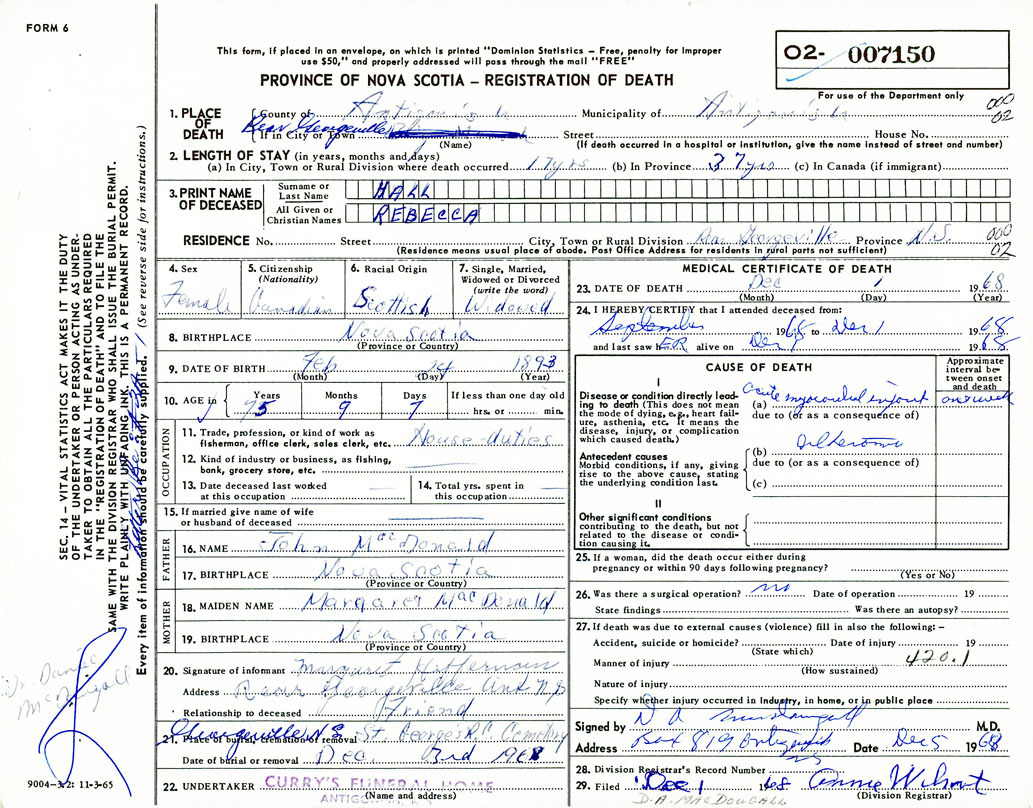 FORM 6
This form, if placed in an envelope, on which is printed "Dominion Statistics – Free, penalty for improper
use $50," and properly addressed will pass through the mail "FREE"
PROVINCE OF NOVA SCOTIA – REGISTRATION OF DEATH
O2- 007150
For use of the Department only
000
02
1. PLACE OF DEATH
County of Antigonish Municipality of Antigonish
Rear Georgeville
If in City or Town Street House No.
(Name) (If death occurred in a hospital or institution, give the name instead of street and number)
2. LENGTH OF STAY (in years, months and days)
(a) In City, Town or Rural Division where death occurred 17yrs (b) In Province 37yrs (c) In Canada (if immigrant)
3. PRINT NAME OF DECEASED
Surname or Last Name HALL
All Given or Christian Names REBECCA
RESIDENCE No. Street City, Town or Rural Division Rear Georgeville Province N.S.
000
02
(Residence means usual place of abode. Post Office Address for residents in rural parts not sufficient)
4. Sex Female
5. Citizenship (Nationality) Canadian
6. Racial Origin Scottish
7. Single, Married, Widowed or Divorced (write the word) Widowed
8. BIRTHPLACE Nova Scotia
(Province or Country)
9. DATE OF BIRTH Feb 24 1893
(Month) (Day) (Year)
10. AGE in Years Months Days If less than one day old
75 9 7 hrs. or min.
OCCUPATION
11. Trade, profession, or kind of work as
fisherman, office clerk, sales clerk, etc. House-duties
12. Kind of industry or business, as fishing,
bank, grocery store, etc.
13. Date deceased last worked
at this occupation
14. Total yrs. spent in
this occupation
15. If married give name of wife
or husband of deceased
FATHER
16. NAME John MacDonald
17. BIRTHPLACE Nova Scotia
(Province or Country)
MOTHER
18. MAIDEN NAME Margaret MacDonald
19. BIRTHPLACE Nova Scotia
(Province or Country)
20. Signature of informant Margaret Heffernan
Address Rear Georgeville Ant N.S
Relationship to deceased Friend
Georgeville N.S
21. Place of burial, cremation or removal St. Georges R.C. Cemetery
Date of burial or removal Dec. 3rd 1968
22. UNDERTAKER CURRY'S FUNERAL HOME
ANTIGONISH, N.S.
(Name and address)
MEDICAL CERTIFICATE OF DEATH
23. DATE OF DEATH Dec 1 1968
(Month) (Day) (Year)
24. I HEREBY CERTIFY that I attended deceased from:
September 1968 to Dec 1 1968
and last saw hER alive on Dec 1 1968
CAUSE OF DEATH
Approximate interval between onset and death
I
Disease or condition directly leading to death (This does not mean
the mode of dying, e.g., heart failure, asthenia, etc. It means the
disease, injury, or complication
which caused death.)
(a) Acute myocardial infarct one week
due to (or as a consequence of)
Antecedent causes
Morbid conditions, if any, giving
rise to the above cause, stating
the underlying condition last.
(b)
due to (or as a consequence of)
(c)
II
Other significant conditions
contributing to the death, but not
related to the disease or condition causing it.
25. If a woman, did the death occur either during
pregnancy or within 90 days following pregnancy?
(Yes or No)
26. Was there a surgical operation? no Date of operation 19
State findings Was there an autopsy?
27. If death was due to external causes (violence) fill in also the following: –
Accident, suicide or homicide? Date of injury 19
(State which)
420.1
Manner of injury
(How sustained)
Nature of injury
Specify whether injury occurred in Industry, in home, or in public place
Signed by D A MacDougall M.D.
Address Box 819 Antigonish NS Date Dec 5 1968
28. Division Registrar's Record Number
29. Filed Dec 1 1968 Annie Wilmot
D. A. MACDOUGALL (Division Registrar)
SEC. 14 – VITAL STATISTICS ACT MAKES IT THE DUTY
OF THE UNDERTAKER OR PERSON ACTING AS UNDERTAKER TO OBTAIN ALL THE PARTICULARS REQUIRED
IN THE "REGISTRATION OF DEATH" AND TO FILE THE
SAME WITH THE DIVISION REGISTRAR WHO SHALL ISSUE THE BURIAL PERMIT.
WRITE PLAINLY WITH UNFADING INK. THIS IS A PERMANENT RECORD.
Every item of information should be carefully supplied. (See reverse side for instructions.)
Dr Daniel
McDougall
9004-3.2: 11-3-65